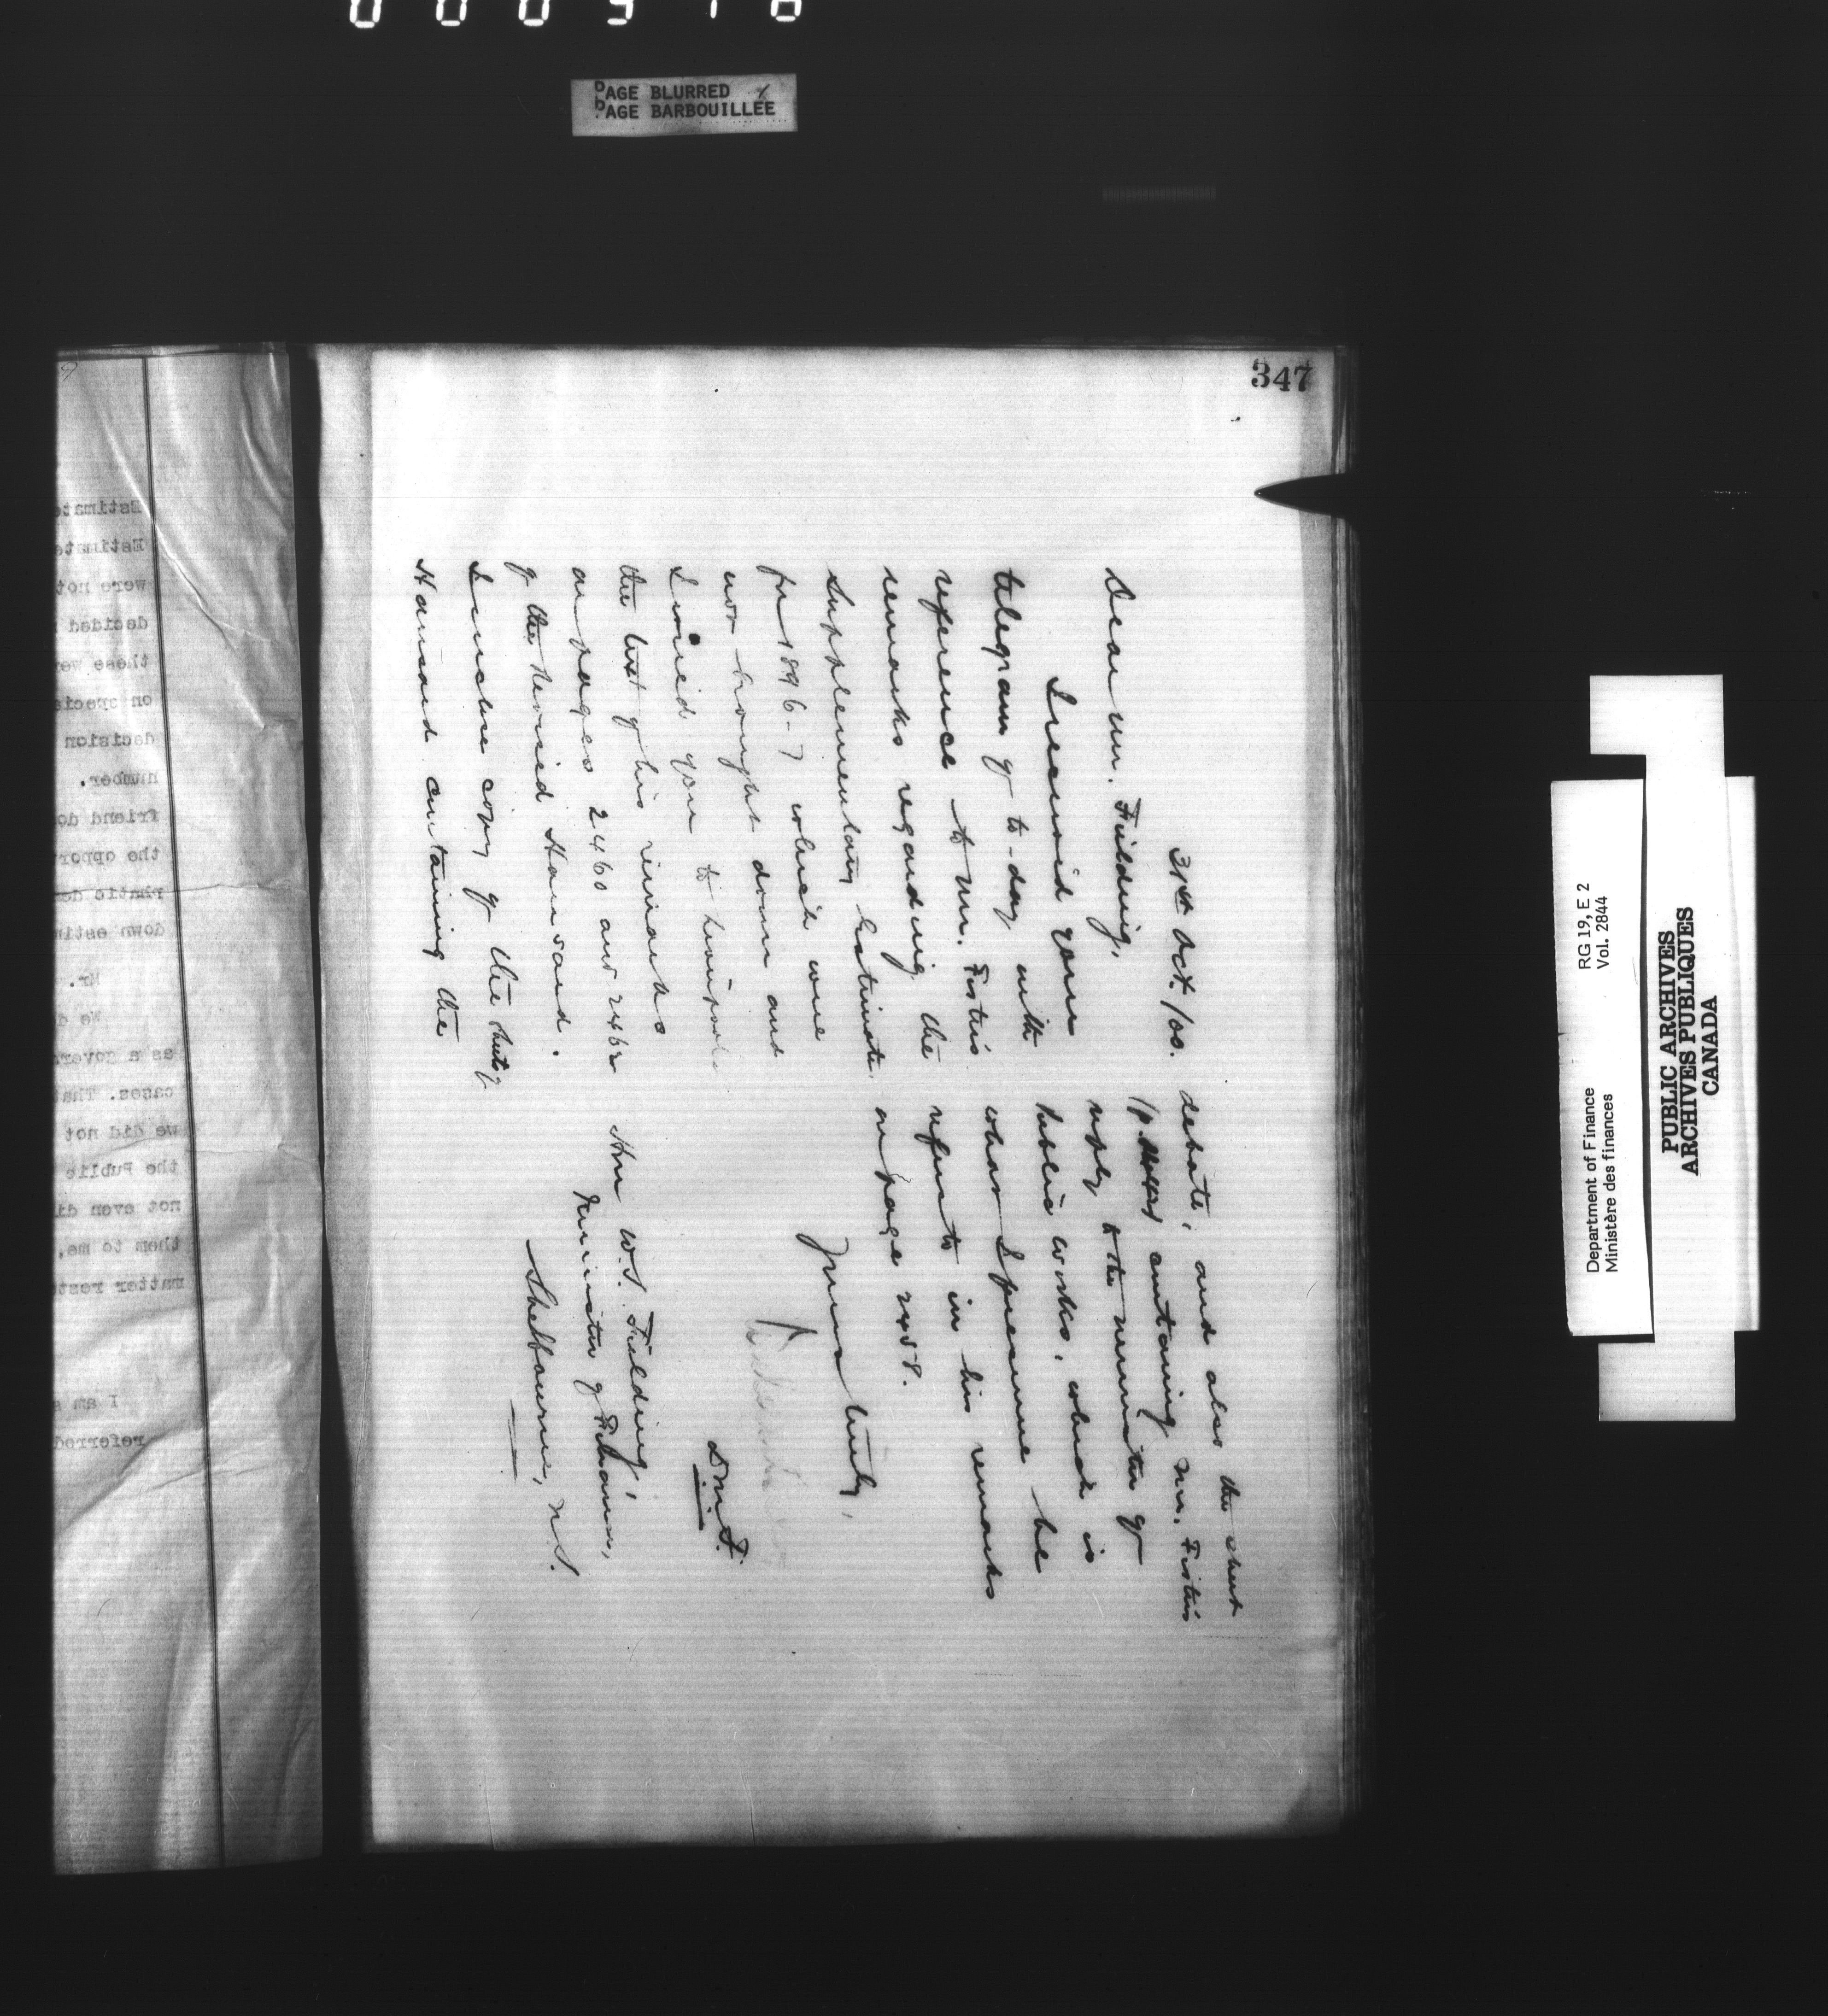 PAGE BLURRED
PAGE BARBOUILLEE
347
31st Oct. /00.
Dear Mr. Fielding,
I received your
telegram of to-day with
reference to Mr. Foster's
remarks regarding the
Supplementary Estimates
for 1896-7 which were
not brought down and
I wired you to Liverpool
the text of his remarks
on pages 2460 and 2462
of the Revised Hansard.
I enclose copy of the sheet of
Hansard containing the
debate, and also the sheet
containing Mr. Foster's
reply to the Minister of
Public Works, which is
what I presume he
refers to in his remarks
on page 2458.
Yours truly,
D.M.F.
Hon W.S. Fielding,
Minister of Finance,
Shelbourne, N.S.
Estimate
Estimate
were not
decided
these we
on specia
decision
number.
friend do
the oppor
phatic de
down estim
Mr.
We d
as a govern
cases. That
we did not
the Public
not even di
them to me,
matter rest
I am a
referred
Department of Finance
Ministère des finances
RG 19, E 2
Vol. 2844
PUBLIC ARCHIVES
ARCHIVES PUBLIQUES
CANADA